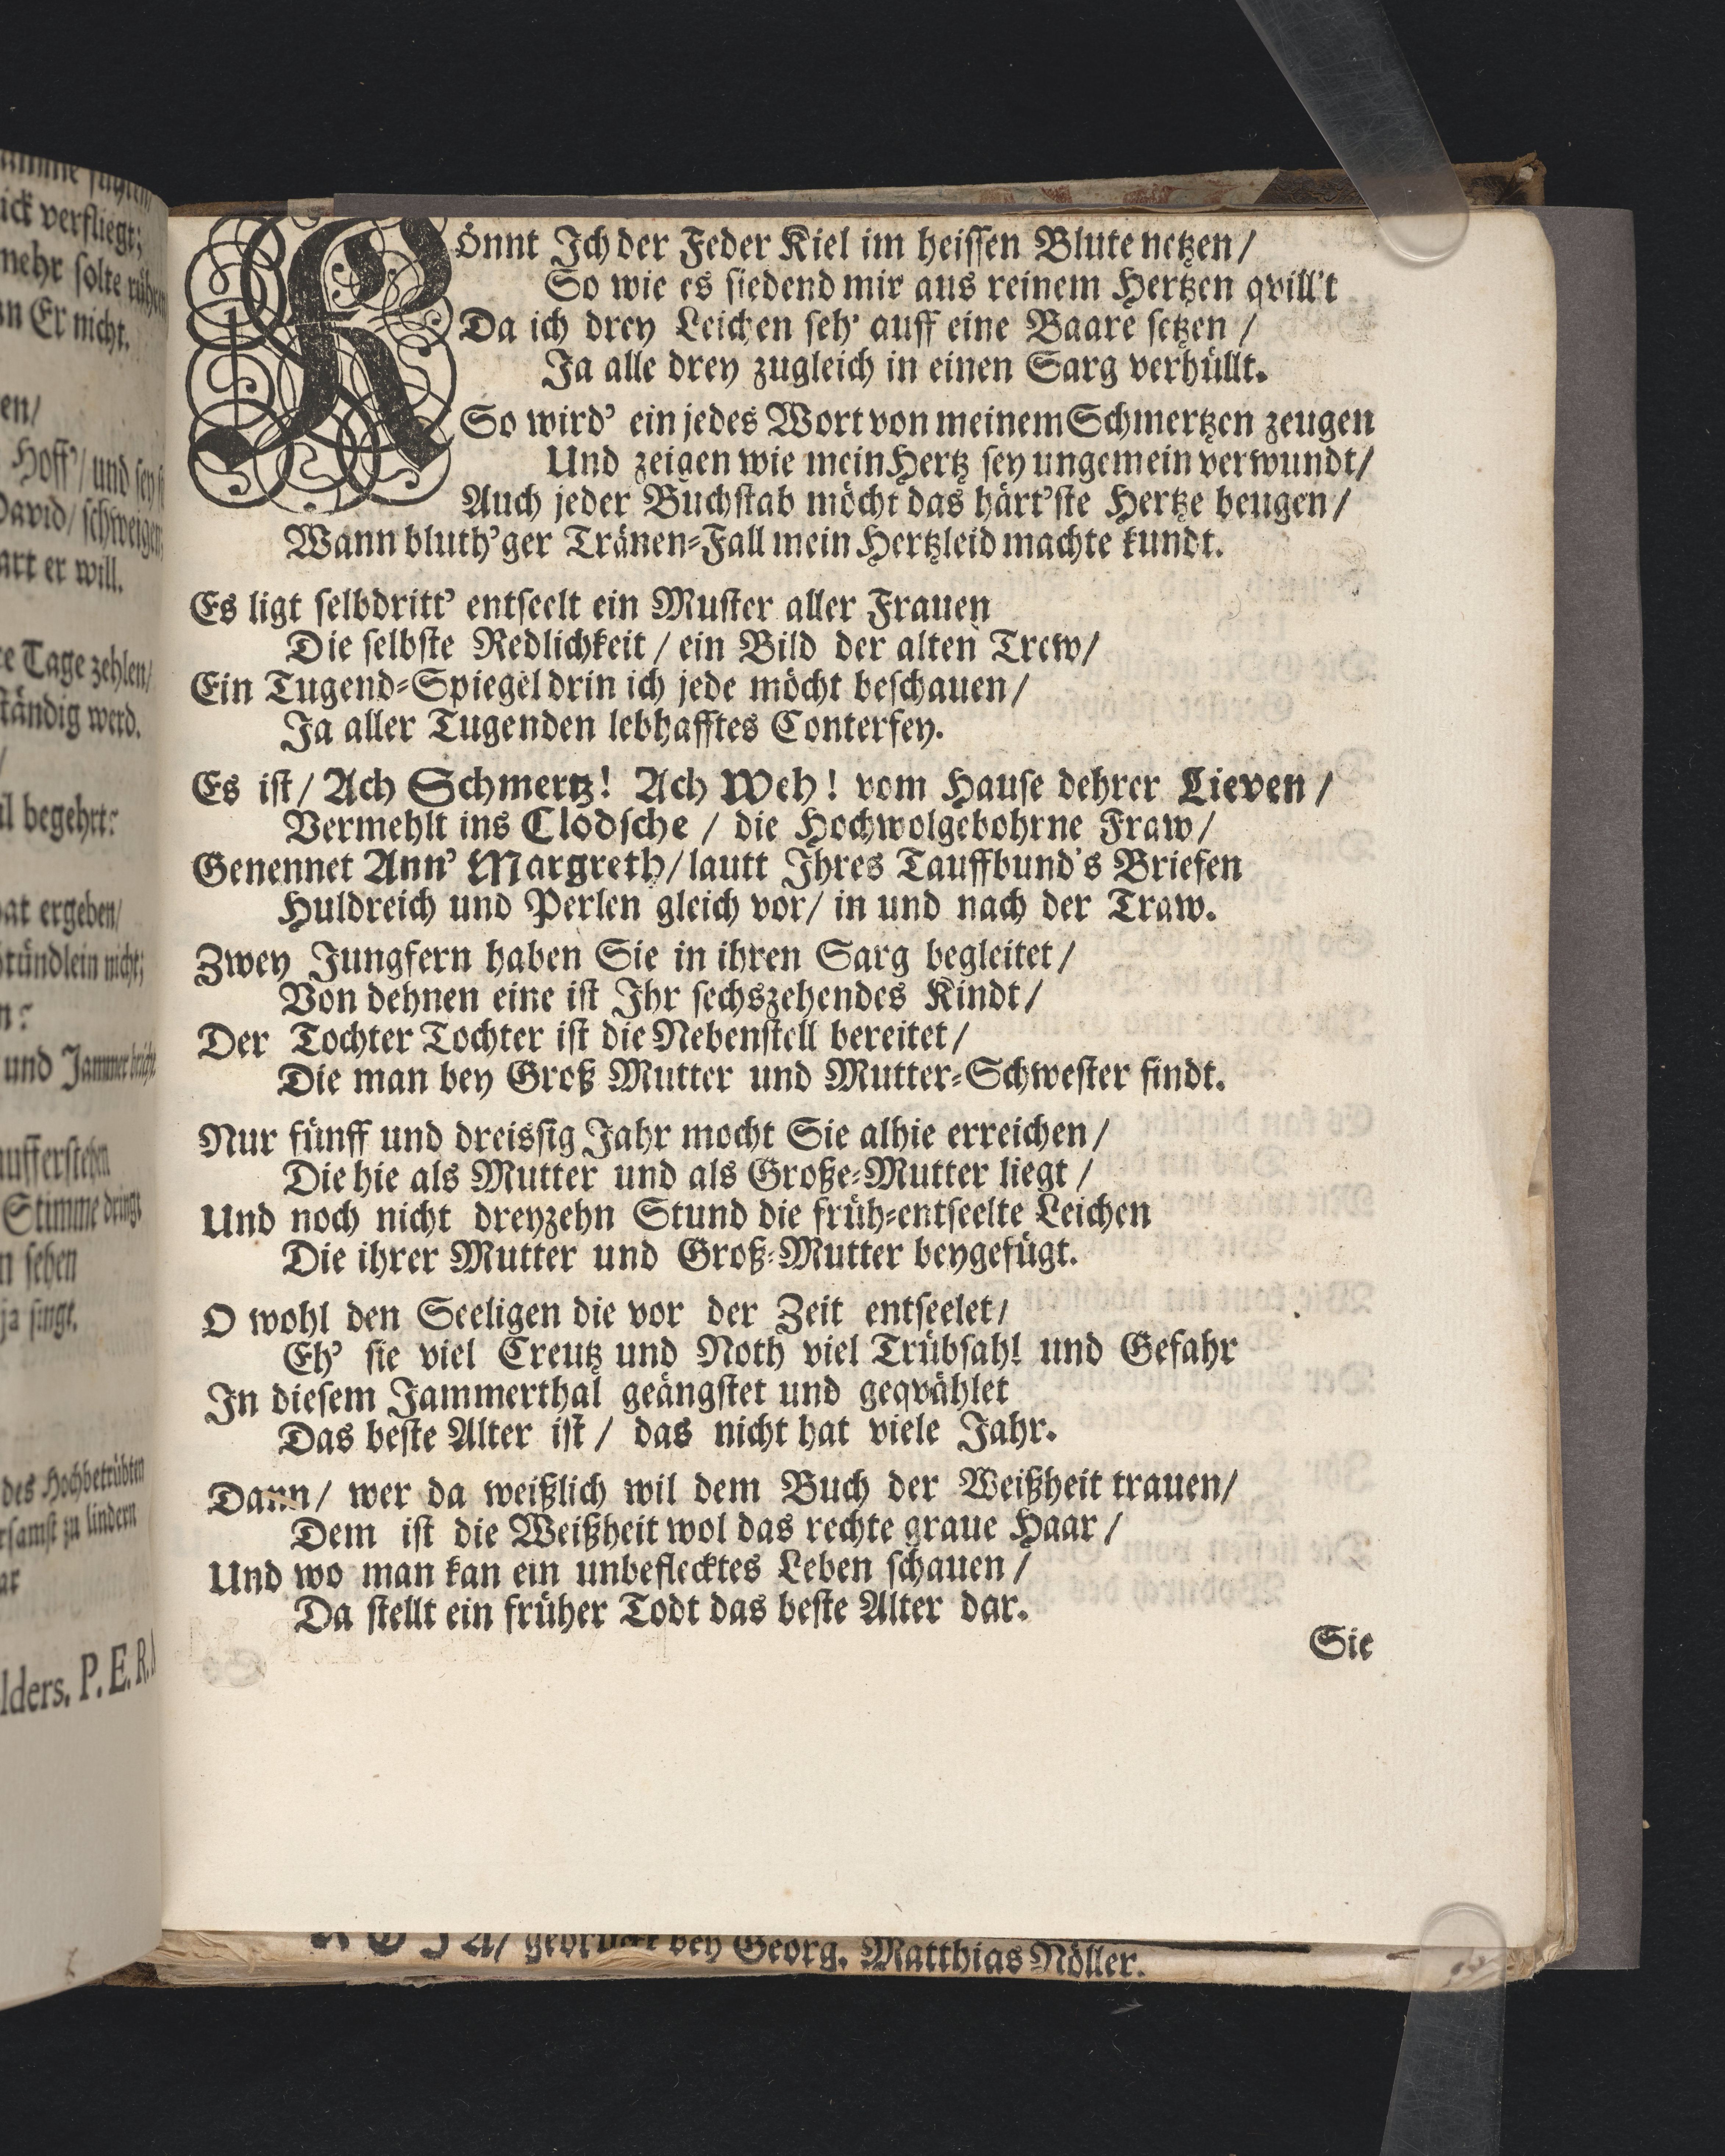 ick verfliegt;
mehr solte rühren
an Er nicht.
en/
Hoff'/ und sey
David/ schweigen
art er will.
re Tage zehlen/
ständig werd.
/
il begehrt:
hat ergeben/
stündlein nicht;
n:
und Jammer bricht
aufferstehn
Stimme dringt
n sehen
ja singt.
des Hochbetrübten
rsamst zu lindern
lders. P. E. R.
Könnt Ich der Feder Kiel im heissen Blute netzen/
So wie es siedend mir aus reinem Hertzen qvill't
Da ich drey Leichen seh' auff eine Baare setzen /
Ja alle drey zugleich in einen Sarg verhüllt.
So wird' ein jedes Wort von meinem Schmertzen zeugen
Und zeigen wie mein Hertz sey ungemein verwundt/
Auch jeder Buchstab möcht das härt'ste Hertze beugen/
Wann bluth'ger Tränen-Fall mein Hertzleid machte kundt.
Es ligt selbdritt' entseelt ein Muster aller Frauen
Die selbste Redlichkeit / ein Bild der alten Trew/
Ein Tugend-Spiegel drin ich jede möcht beschauen/
Ja aller Tugenden lebhafftes Conterfey.
Es ist/ Ach Schmertz! Ach Weh! vom Hause dehrer Lieven /
Vermehlt ins Clodsche / die Hochwolgebohrne Fraw/
Genennet Ann' Margreth/ lautt Ihres Tauffbund's Briefen
Huldreich und Perlen gleich vor/ in und nach der Traw.
Zwey Jungfern haben Sie in ihren Sarg begleitet/
Von dehnen eine ist Ihr sechszehendes Kindt/
Der Tochter Tochter ist die Nebenstell bereitet/
Die man bey Groß Mutter und Mutter-Schwester findt.
Nur fünff und dreissig Jahr mocht Sie alhie erreichen/
Die hie als Mutter und als Große-Mutter liegt /
Und noch nicht dreyzehn Stund die früh-entseelte Leichen
Die ihrer Mutter und Groß-Mutter beygefügt.
O wohl den Seeligen die vor der Zeit entseelet/
Eh' sie viel Creutz und Noth viel Trübsahl und Gefahr
In diesem Jammerthal geängstet und geqvählet
Das beste Alter ist / das nicht hat viele Jahr.
Dann/ wer da weißlich wil dem Buch der Weißheit trauen/
Dem ist die Weißheit wol das rechte graue Haar /
Und wo man kan ein unbeflecktes Leben schauen /
Da stellt ein früher Todt das beste Alter dar.
Sie
gedruckt bey Georg. Matthias Nöller.